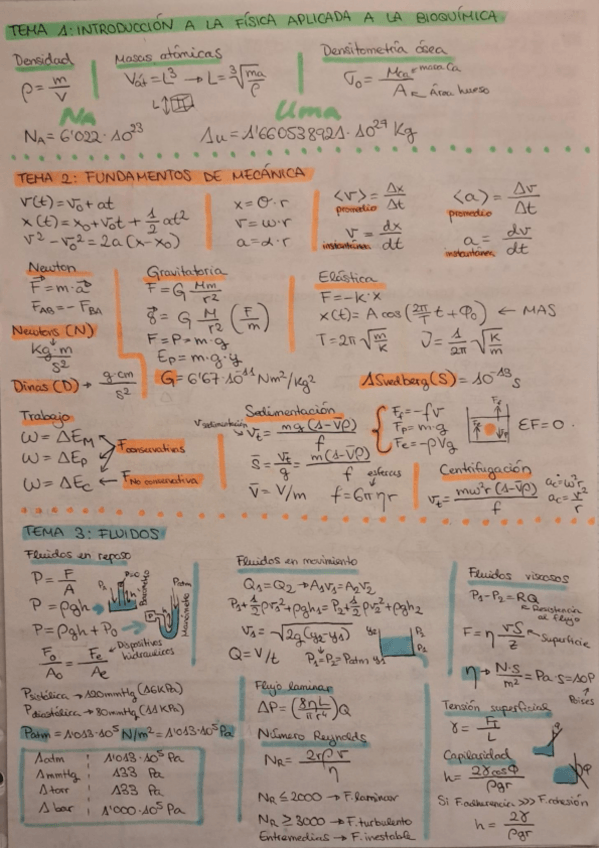 TEMA 1: INTRODUCCIÓN A LA FÍSICA APLICADA A LA BIOQUÍMICA
Densidad
ρ = m/V
Masas atómicas
Vát = L³ → L = ∛(ma/ρ)
L
Densitometría ósea
σo = MCa = masa Ca
A ← Área hueso
NA
NA = 6'022 · 10²³
Uma
1u = 1'660538921 · 10²⁷ Kg
TEMA 2: FUNDAMENTOS DE MECÁNICA
v(t) = v0 + at
x(t) = x0 + v0t + 1/2 at²
v² - v0² = 2a(x - x0)
x = θ · r
v = ω · r
a = α · r
<v> = Δx/Δt
promedio
v = dx/dt
instantánea
<a> = Δv/Δt
promedio
a = dv/dt
instantánea
Newton
F = m · a
FAB = - FBA
Newtons (N)
Kg · m / s²
Dinas (D) → g · cm / s²
Gravitatoria
F = G Mm/r²
g = G M/r² (F/m)
F = P = m · g
Ep = m · g · y
G = 6'67 · 10⁻¹¹ Nm²/Kg²
Elástica
F = -K · x
x(t) = A cos (2π/T t + φ0) ← MAS
T = 2π √(m/K)
ν = 1/2π √(K/m)
1 Svedberg (S) = 10⁻¹³ s
Trabajo
ω = ΔEM
ω = ΔEp
ω = ΔEc
Fconservativas
FNo conservativa
Sedimentación
v sedimentación
vt = mg(1 - v̄ρ)/f
s̄ = vt/g = m(1 - v̄ρ)/f
v̄ = V/m
esferas
f = 6π η r
Ff = -fv
Fp = m · g
Fe = -ρVg
ΣF = 0
Centrifugación
vt = mω²r (1 - v̄ρ)/f
ac = ω²r
ac = v²/r
TEMA 3: FLUIDOS
Fluidos en reposo
P = F/A
P = ρgh
P = ρgh + P0
Fo/Ao = Fe/Ae
Dispositivos hidraulicos
P=0
Barómetro
Patm
Manómetro
Psistólica → 120mmHg (16KPa)
Pdiastólica → 80mmHg (11KPa)
Patm = 1'013 · 10⁵ N/m² = 1'013 · 10⁵ Pa
1 atm 1'013 · 10⁵ Pa
1 mmHg 133 Pa
1 torr 133 Pa
1 bar 1'000 · 10⁵ Pa
Fluidos en movimiento
Q1 = Q2 → A1v1 = A2v2
P1 + 1/2 ρv1² + ρgh1 = P2 + 1/2 ρv2² + ρgh2
v1 = √(2g(y2 - y1))
Q = V/t
P1 = P2 = Patm
y2
y1
P1
P2
Flujo laminar
ΔP = (8ηL/πr⁴) Q
Número Reynolds
NR = 2rρv̄/η
NR ≤ 2000 → F. laminar
NR ≥ 3000 → F. turbulento
Entremedias → F. inestable
Fluidos viscosos
P1 - P2 = RQ
Resistencia al flujo
F = η vS/z
Superficie
η → N·S/m² = Pa · s = 10P
Poises
Tensión superficial
γ = FT/L
Capilaridad
h = 2γcosφ/ρgr
Si F.adherencia >>> F.cohesión
h = 2γ/ρgr